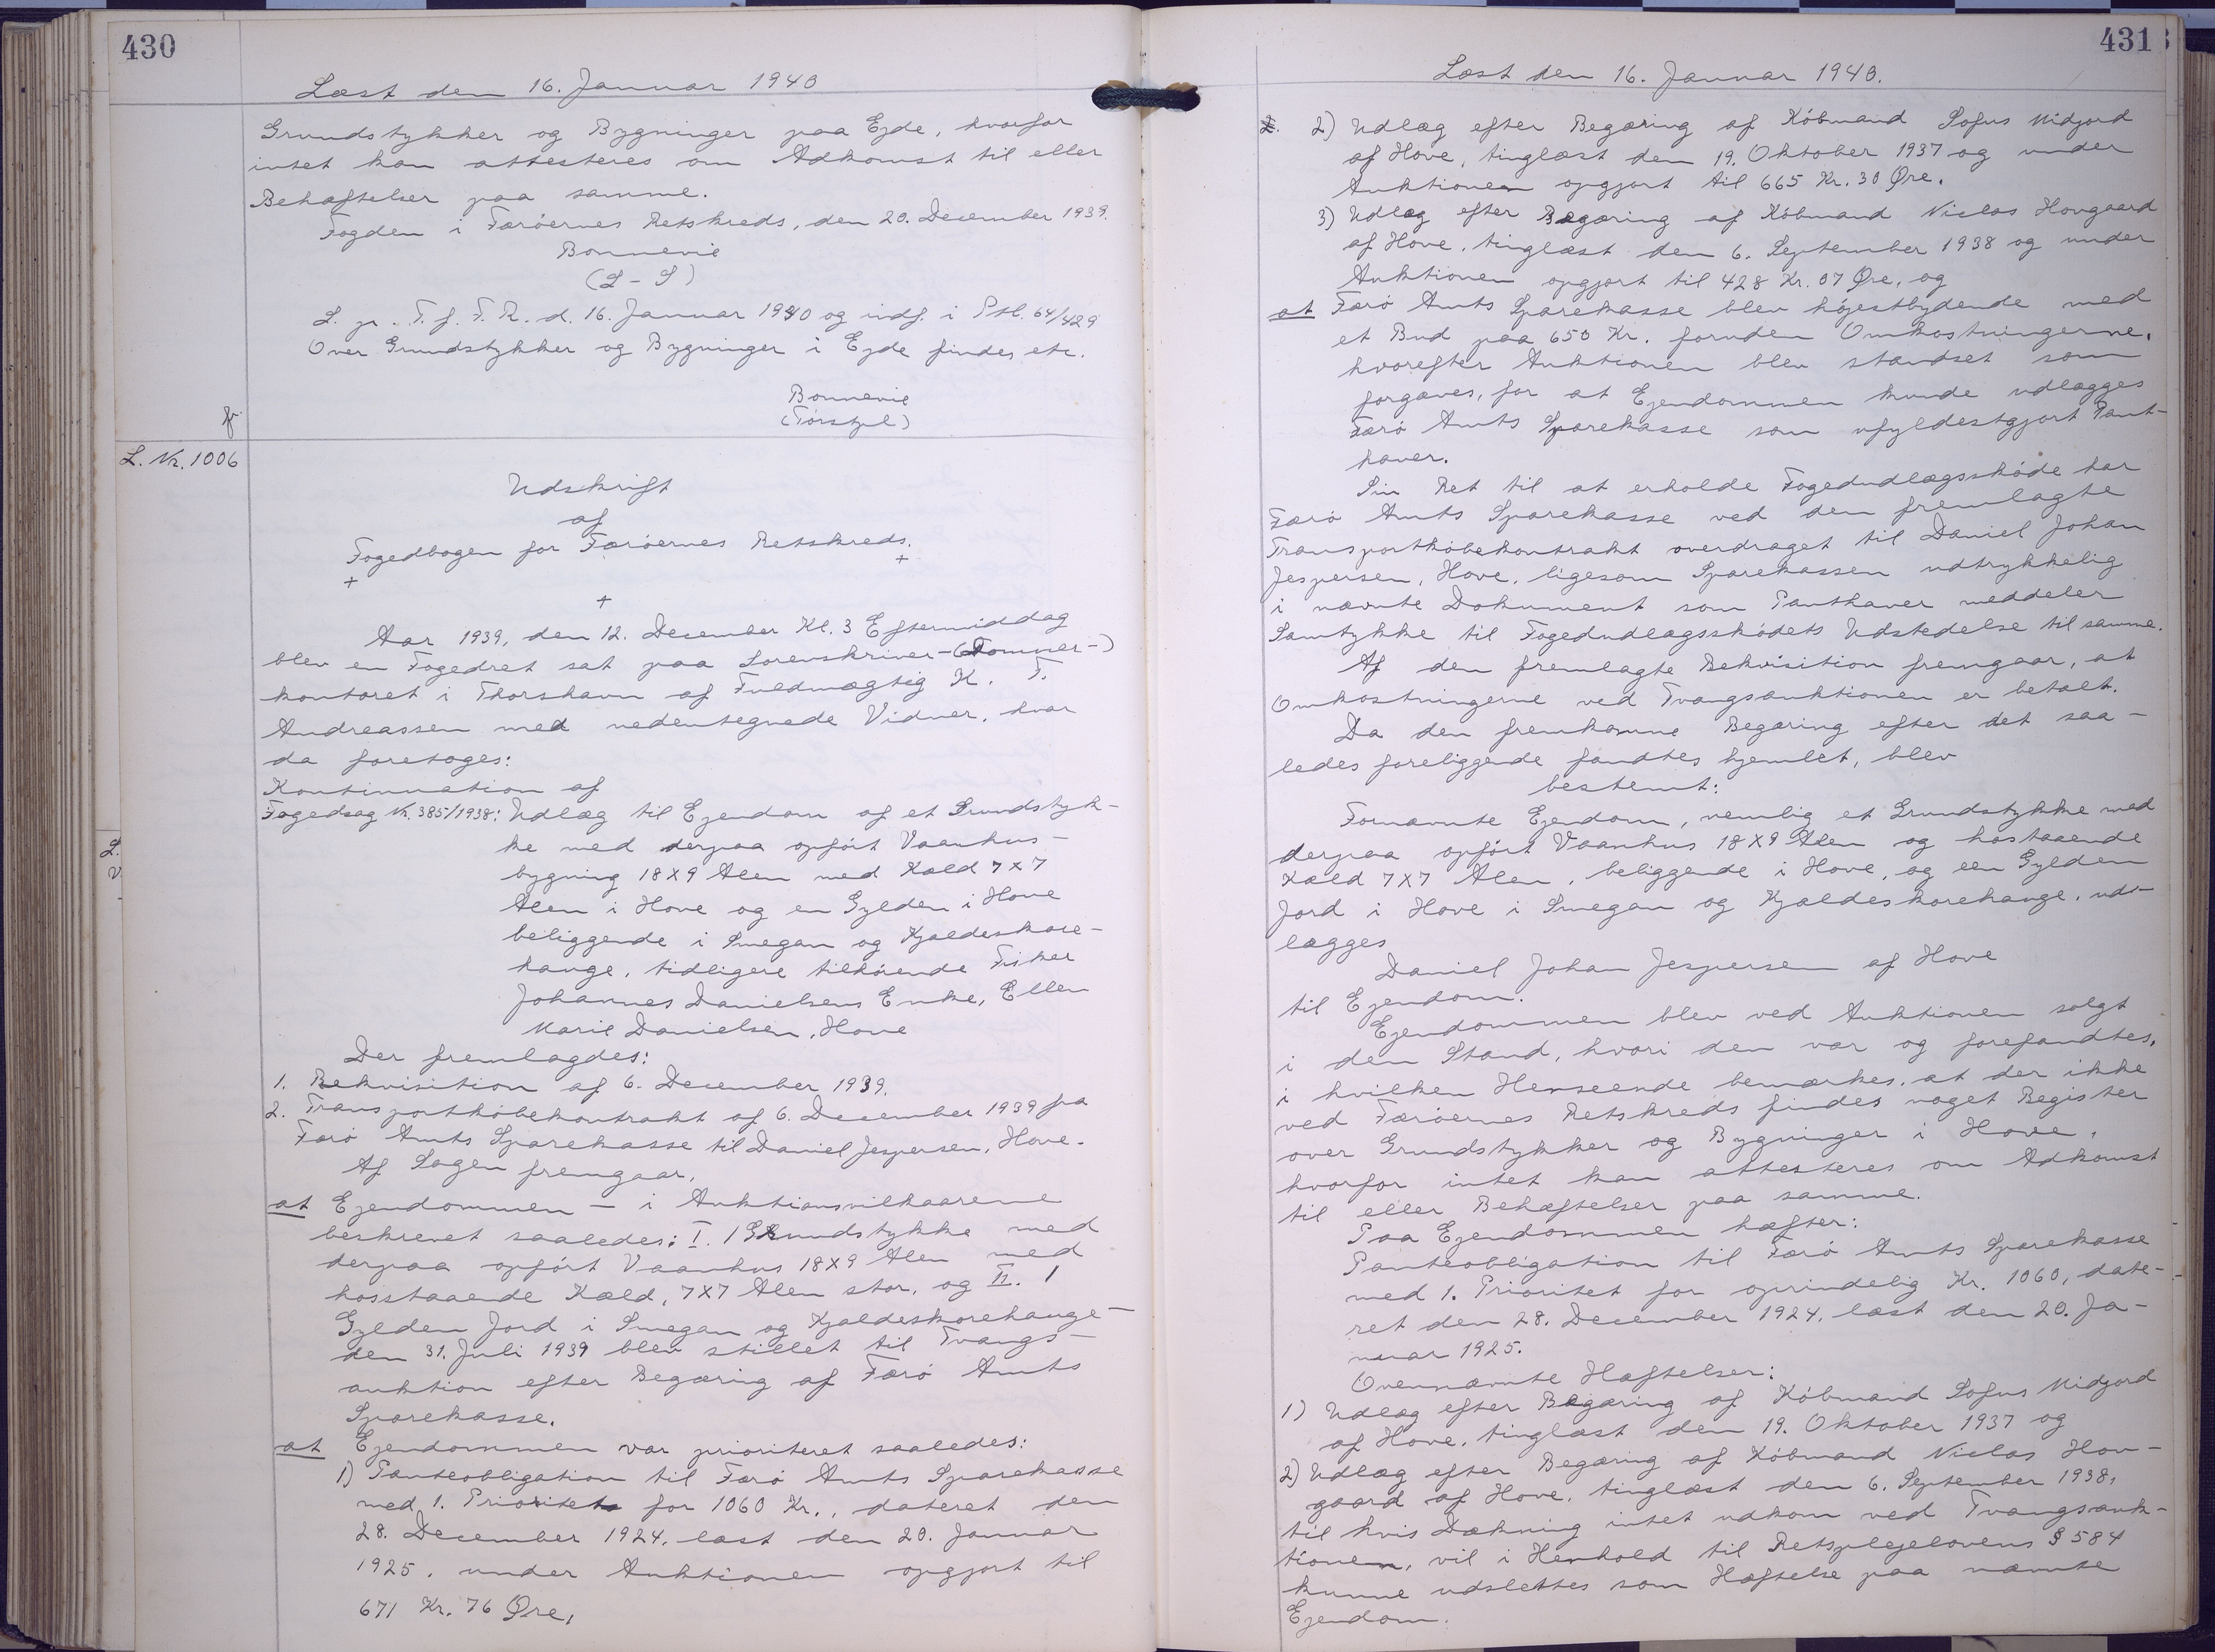 430
Læst den 16. Januar 1940
Grundstykker og Bygninger paa Ejde, hvorfor
intet kan attesteres om Adkomst til eller
Behæftelser paa samme.
Fogden i Færöernes Retskreds, den 20. December 1939.
Bonnevie
(L-S)
L. p. T. f. F. R. d. 16. Januar 1940 og indf. i Ptbl. 64/429
Over Grundstykker og Bygninger i Ejde findes etc.
Bonnevie
L. Nr. 1006
Udskrift
af
Fogedbogen for Færöernes Retskreds.
+ + +
Aar 1939, den 12. December Kl. 3 Eftermiddag
blev en Fogedret sat paa Sorenskriver-(Dommer-)
kontoret i Thorshavn af Fuldmægtig K. F.
Andreassen med nedentegnede Vidner, hvor
da foretoges:
Kontinuation af
Fogedsag Nr. 385/1938: Udlæg til Ejendom af et Grundstyk-
ke med derpaa opfört Vaanhus-
bygning 18X9 Alen med Kæld 7X7
Alen i Hove og en Gylden i Hove
beliggende i Smegan og Kjaldeskore-
hauge, tidligere tilhörende Fisker
Johannes Danielsens Enke, Ellen
Marie Danielsen, Hove
Der fremlagdes:
1. Rekvisition af 6. December 1939.
2. Transportköbekontrakt af 6. December 1939 fra
Færö Amts Sparekasse til Daniel Jespersen, Hove.
Af Sagen fremgaar,
at Ejendommen - i Auktionsvilkaarene
beskrevet saaledes: I. 1 Grundstykke med
derpaa opfört Vaanhus 18X9 Alen med
hosstaaende Kæld, 7X7 Alen stor, og II. 1
Gylden Jord i Smegan og Kjaldeskorehauge-
den 31. Juli 1939 blev stillet til Tvangs-
auktion efter Begæring af Færö Amts
Sparekasse.
at Ejendommen var prioriteret saaledes:
1) Panteobligation til Færö Amts Sparekasse
med 1. Prioritet for 1060 Kr., dateret den
28. December 1924, læst den 20. Januar
1925, under Auktionen opgjort til
671 Kr. 76 Øre,
431
Læst den 16. Januar 1940.
2) Udlæg efter Begæring af Köbmand Sofus Midjord
af Hove, tinglæst den 19. Oktober 1937 og under
Auktionen opgjort til 665 Kr. 30 Øre.
3) Udlæg efter Begæring af Köbmand Niclas Hovgaard
af Hove, tinglæst den 6. September 1938 og under
Auktionen opgjort til 428 Kr. 07 Øre, og
at Færö Amts Sparekasse blev höjestbydende med
et Bud paa 650 Kr. foruden Omkostningerne,
hvorefter Auktionen blev standset som
forgæves, for at Ejendommen kunde udlægges
Færö Amts Sparekasse som ufyldestgjort Pant-
haver.
Sin Ret til at erholde Fogedudlægsskøde har
Færö Amts Sparekasse ved den fremlagte
Transportköbekontrakt overdraget til Daniel Johan
Jespersen, Hove, ligesom Sparekassen udtrykkelig
i nævnte Dokument som Panthaver meddeler
Samtykke til Fogedudlægsskødets Udstedelse til samme.
Af den fremlagte Rekvisition fremgaar, at
Omkostningerne ved Tvangsauktionen er betalt.
Da den fremkomne Begæring efter det saa-
ledes foreliggende fandtes hjemlet, blev
bestemt:
Fornævnte Ejendom, nemlig et Grundstykke med
derpaa opfört Vaanhus 18X9 Alen og hostaaende
Kæld 7X7 Alen, beliggende i Hove, og een Gylden
Jord i Hove i Smegan og Kjaldeskorehauge, ud-
lægges
Daniel Johan Jespersen af Hove
til Ejendom.
Ejendommen blev ved Auktionen solgt
i den Stand, hvori den var og forefandtes,
i hvilken Henseende bemærkes, at der ikke
ved Færöernes Retskreds findes noget Register
over Grundstykker og Bygninger i Hove,
hvorfor intet kan attesteres om Adkomst
til eller Behæftelser paa samme.
Paa Ejendommen hæfter:
Panteobligation til Færö Amts Sparekasse
med 1. Prioritet for oprindelig Kr. 1060, date-
ret den 28. December 1924, læst den 20. Ja-
nuar 1925.
Ovennævnte Hæftelser:
1) Udlæg efter Begæring af Köbmand Sofus Midjord
af Hove, tinglæst den 19. Oktober 1937 og
2) Udlæg efter Begæring af Köbmand Niclas Hov-
gaard af Hove, tinglæst den 6. September 1938,
til hvis Dækning intet udkom ved Tvangsauk-
tionen, vil i Henhold til Retsplejelovens § 584
kunne udslettes som Hæftelse paa nævnte
Ejendom.